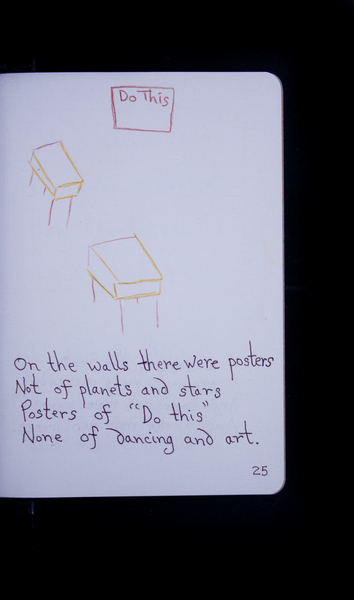 Do This
On the walls there were posters
Not of planets and stars
Posters of "Do this"
None of dancing and art.
25